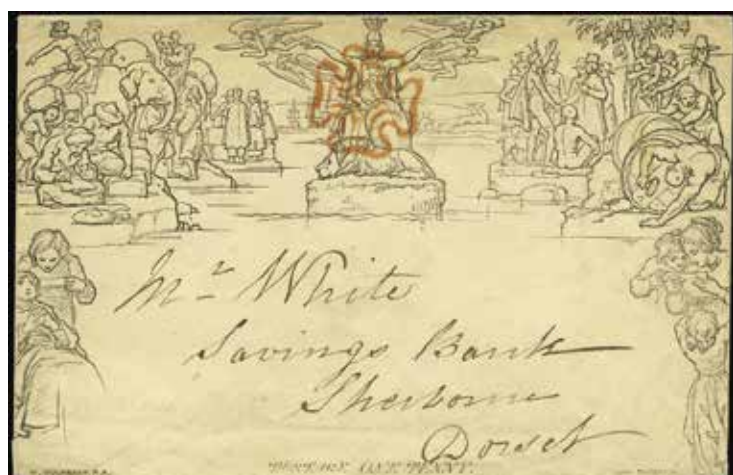 Mr White
Savings Bank
Sherborne
Dorset
POSTAGE ONE PENNY.